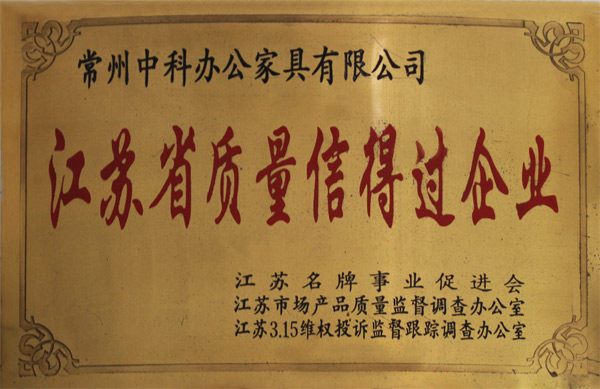 常州中科办公家具有限公司
江苏省质量信得过企业
江苏名牌事业促进会
江苏市场产品质量监督调查办公室
江苏3.15维权投诉监督跟踪调查办公室